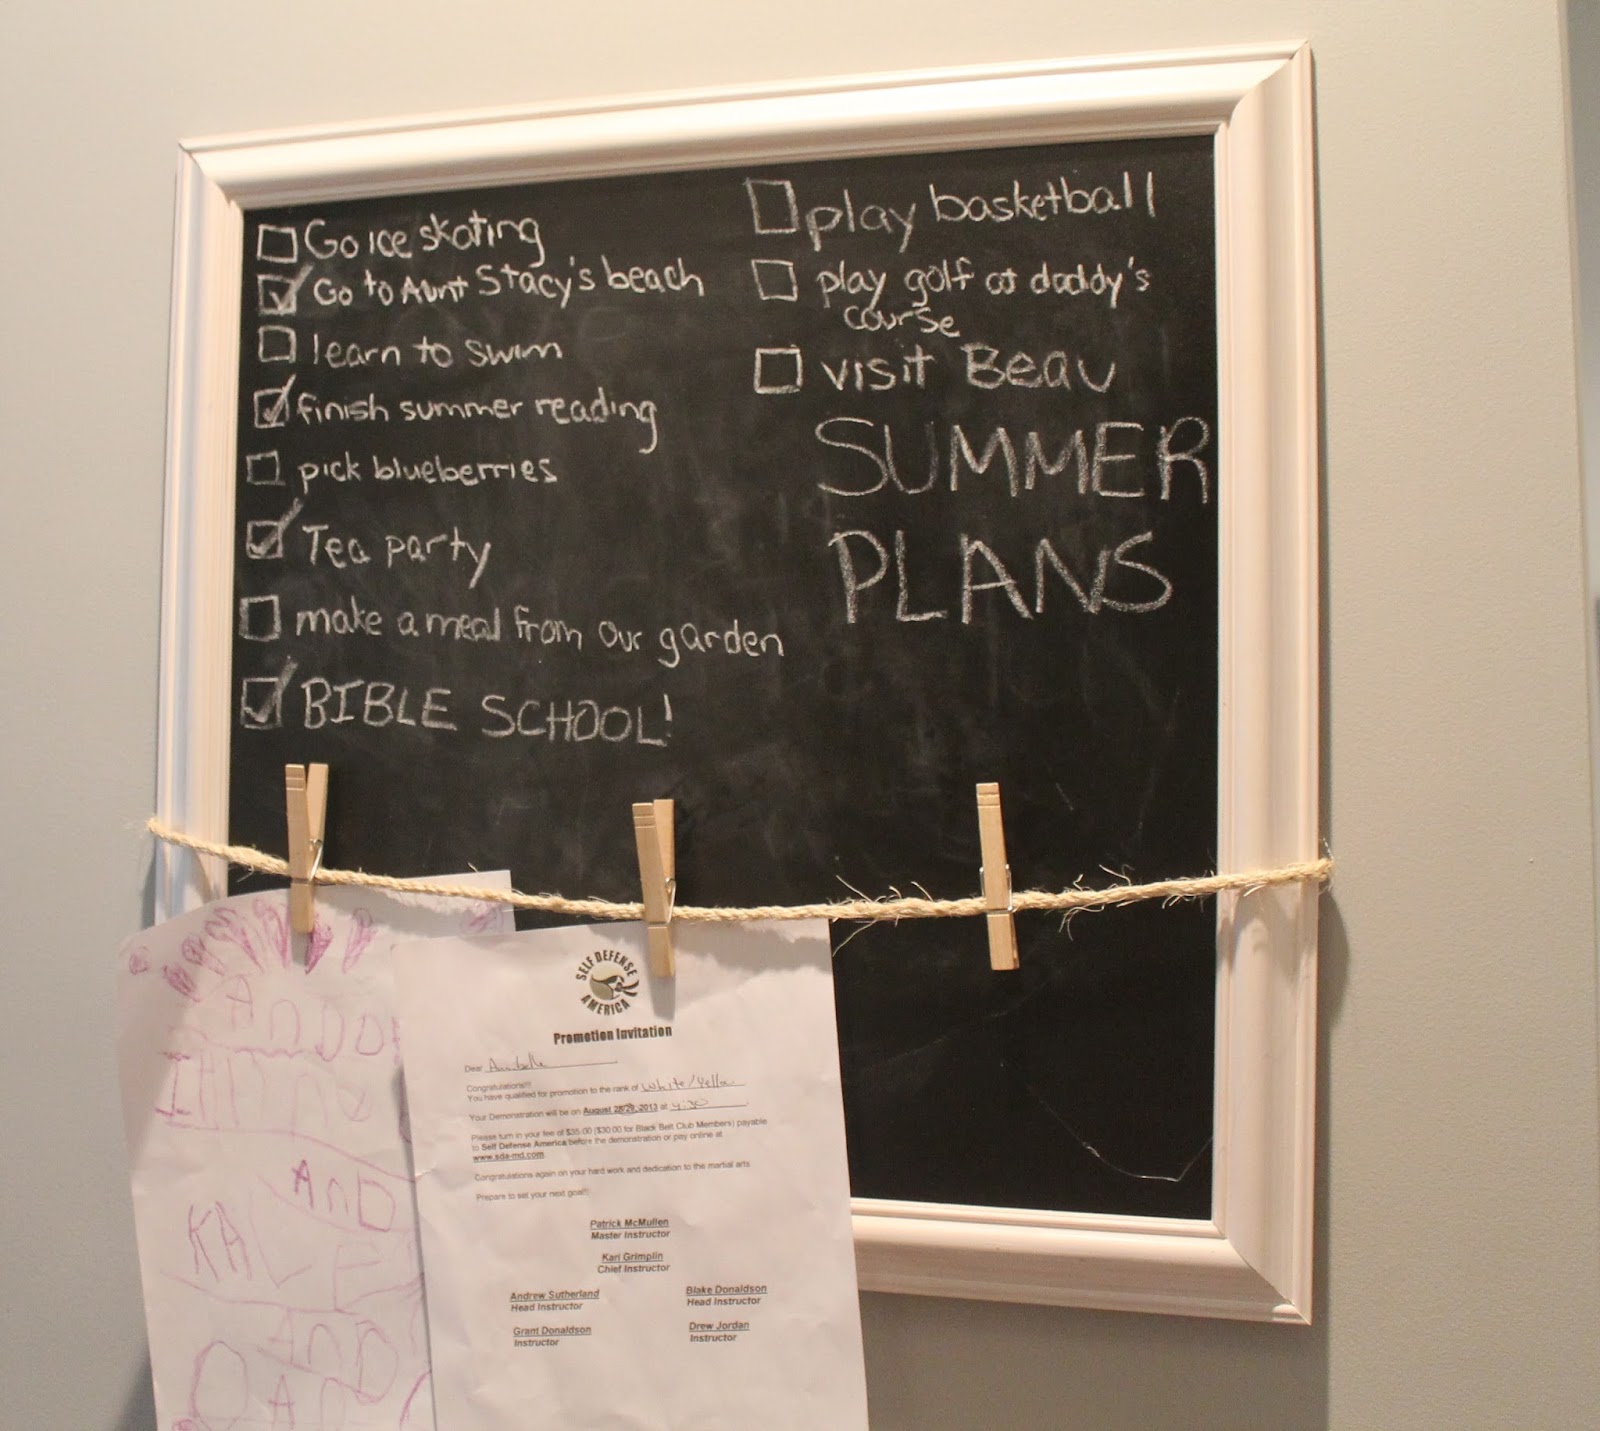 Go ice skating
Go to Aunt Stacy's beach
learn to swim
finish summer reading
pick blueberries
Tea party
make a meal from our garden
BIBLE SCHOOL!
play basketball
play golf at daddy's
course
visit Beau
SUMMER
PLANS
SELF DEFENSE
AMERICA
Promotion Invitation
Dear Annabelle
Congratulations!!!
You have qualified for promotion to the rank of White/Yellow
Your Demonstration will be on August 28/29, 2013 at 4:30
Please turn in your fee of $35.00 ($30.00 for Black Belt Club Members) payable
to Self Defense America before the demonstration or pay online at
www.sda-md.com
Congratulations again on your hard work and dedication to the martial arts
Prepare to set your next goal!!
Patrick McMullen
Master Instructor
Kari Grimplin
Chief Instructor
Andrew Sutherland
Head Instructor
Blake Donaldson
Head Instructor
Grant Donaldson
Instructor
Drew Jordan
Instructor
AnD
KALE
AnD